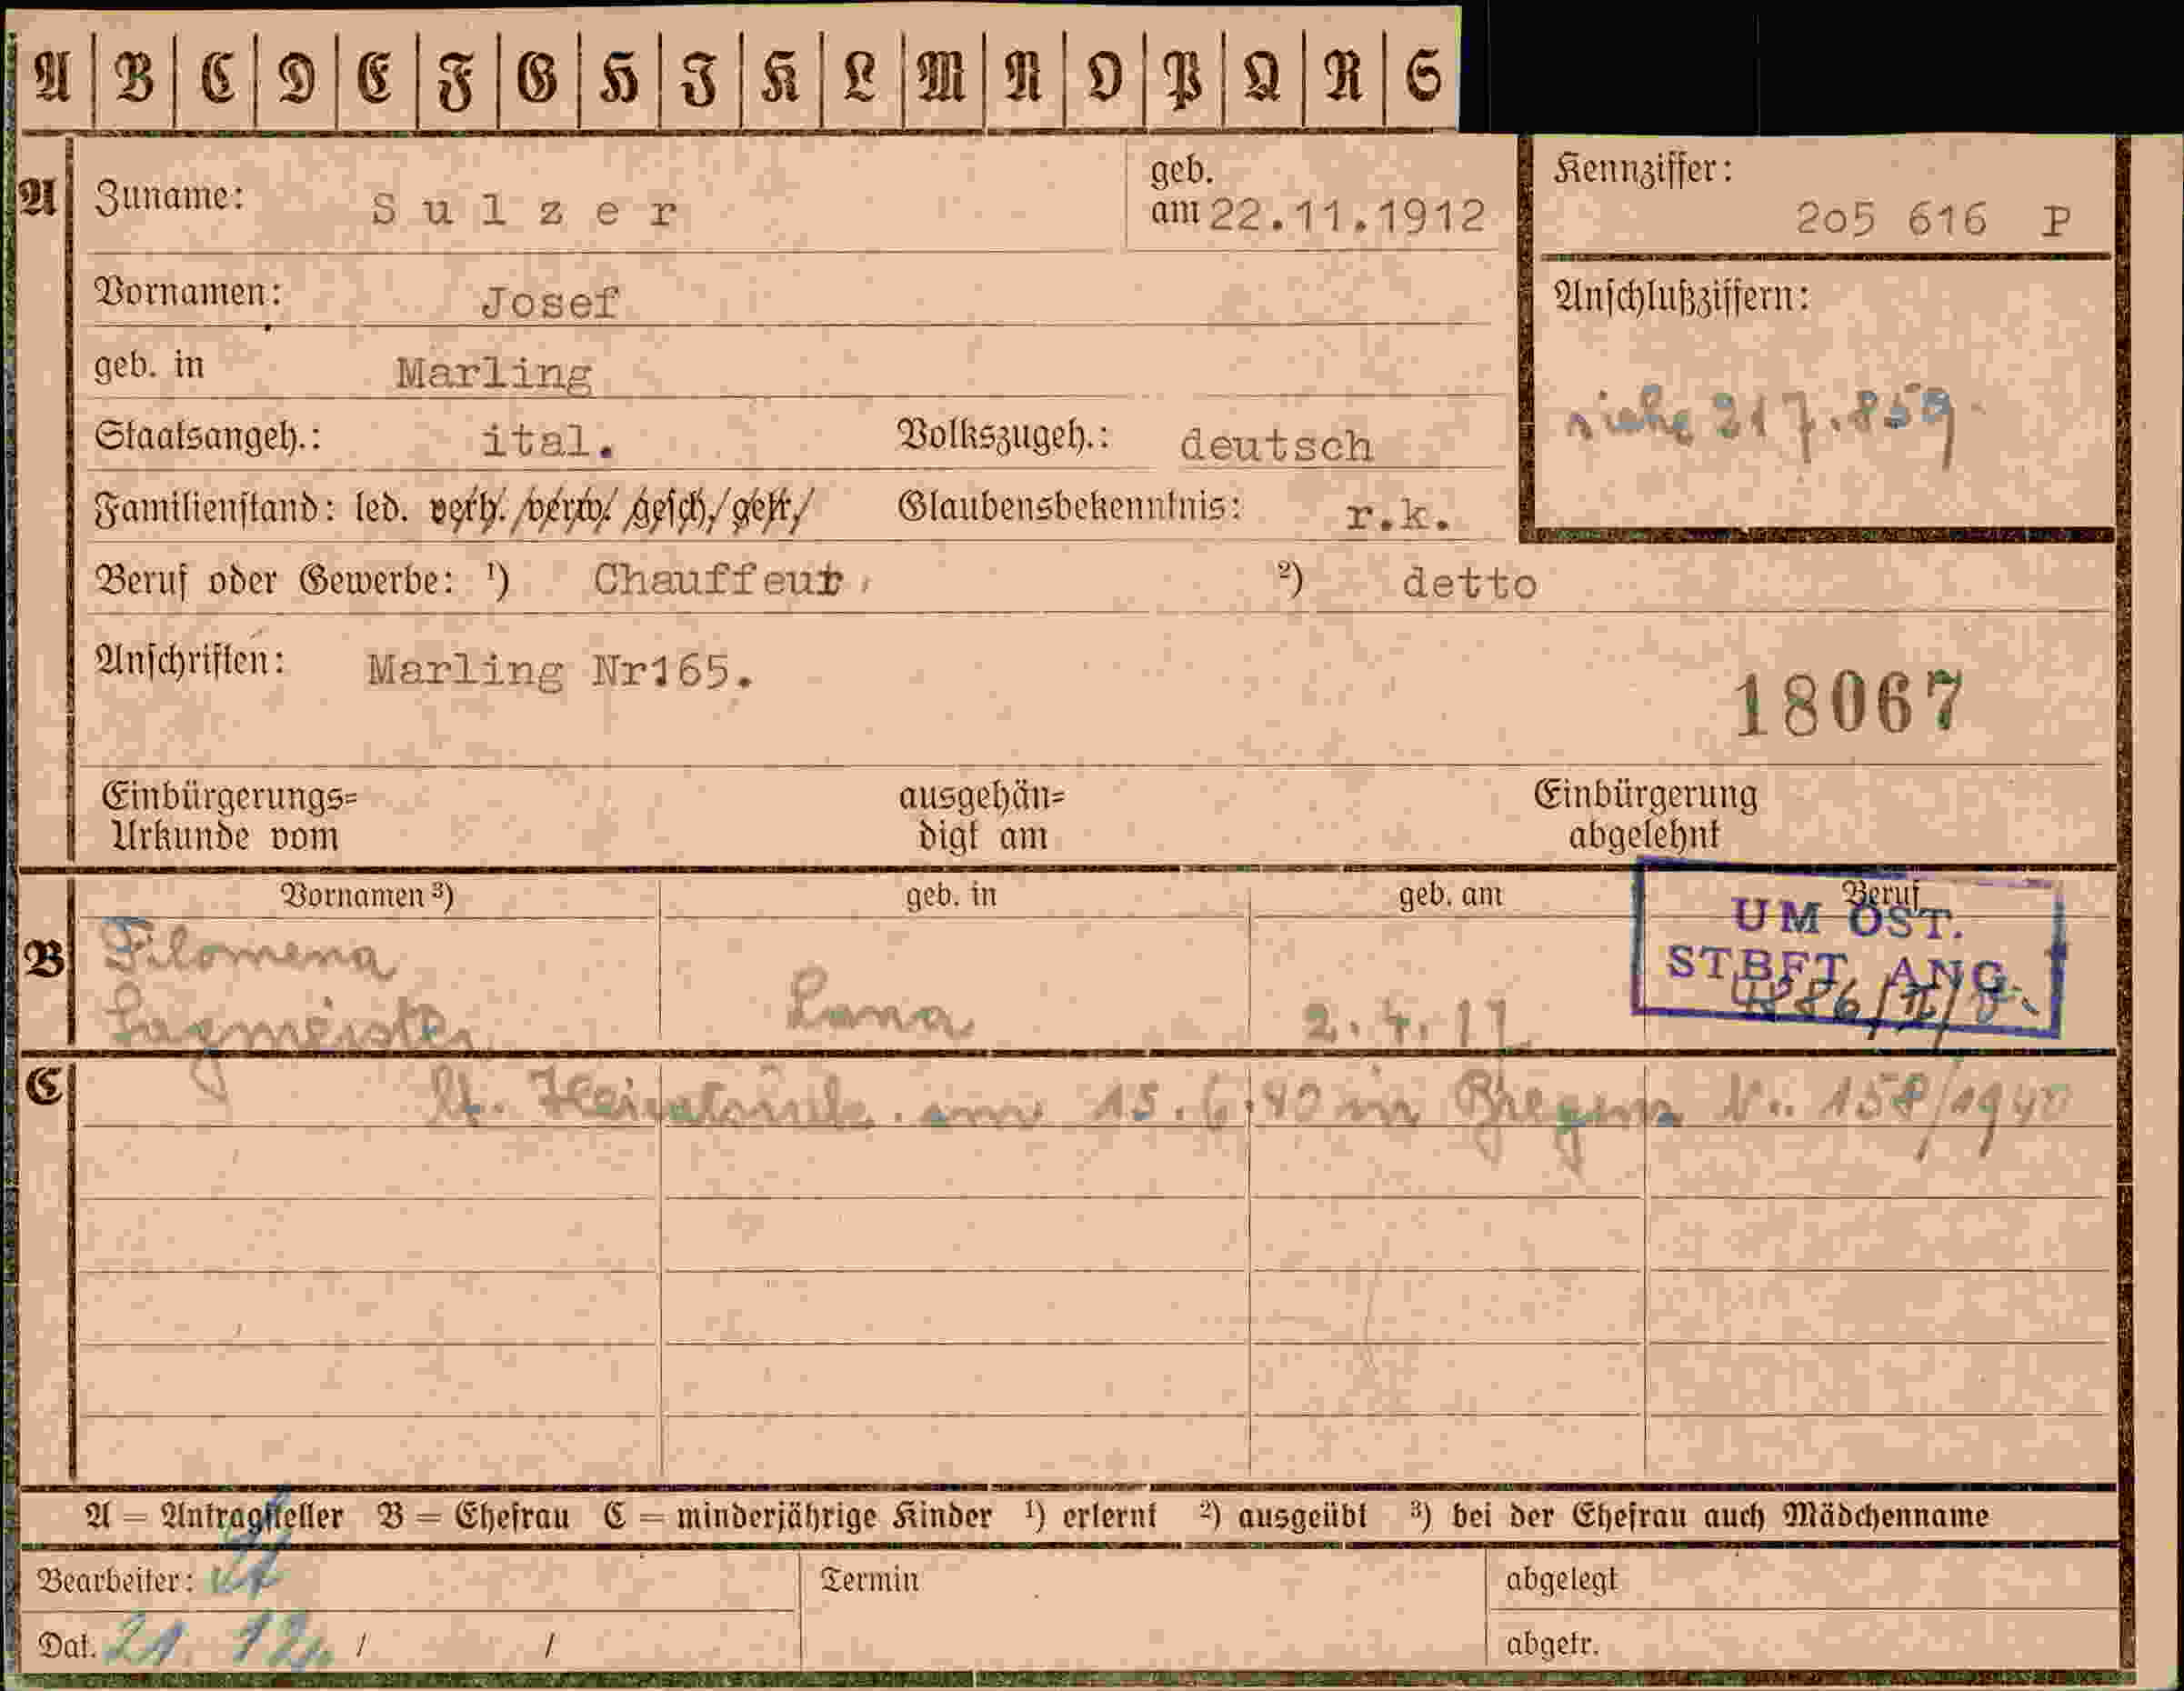 A B C D E F G H I K L M N O P Q R S
A Zuname: Sulzer geb. am 22.11.1912 Kennziffer: 205 616 P
Vornamen: Josef Anschlußziffern:
geb. in Marling siehe 217.859.
Staatsangeh.: ital. Volkszugeh.: deutsch
Familienstand: led. verh. verw. gesch. getr. Glaubensbekenntnis: r.k.
Beruf oder Gewerbe: ¹) Chauffeur ²) detto
Anschriften: Marling Nr165.
18067
Einbürgerungs= ausgehän= Einbürgerung
Urkunde vom digt am abgelehnt
Vornamen ³) geb. in geb. am Beruf
UM OST.
STBFT. ANG.
B Filomena
Sagmeister Lana 2.4.17
C lt. Heiratsurk. am 15.6.40 in Bregenz Nr. 158/1940
A = Antragsteller B = Ehefrau C = minderjährige Kinder ¹) erlernt ²) ausgeübt ³) bei der Ehefrau auch Mädchenname
Bearbeiter: Termin abgelegt
Dat. 21. 12. / / abgetr.